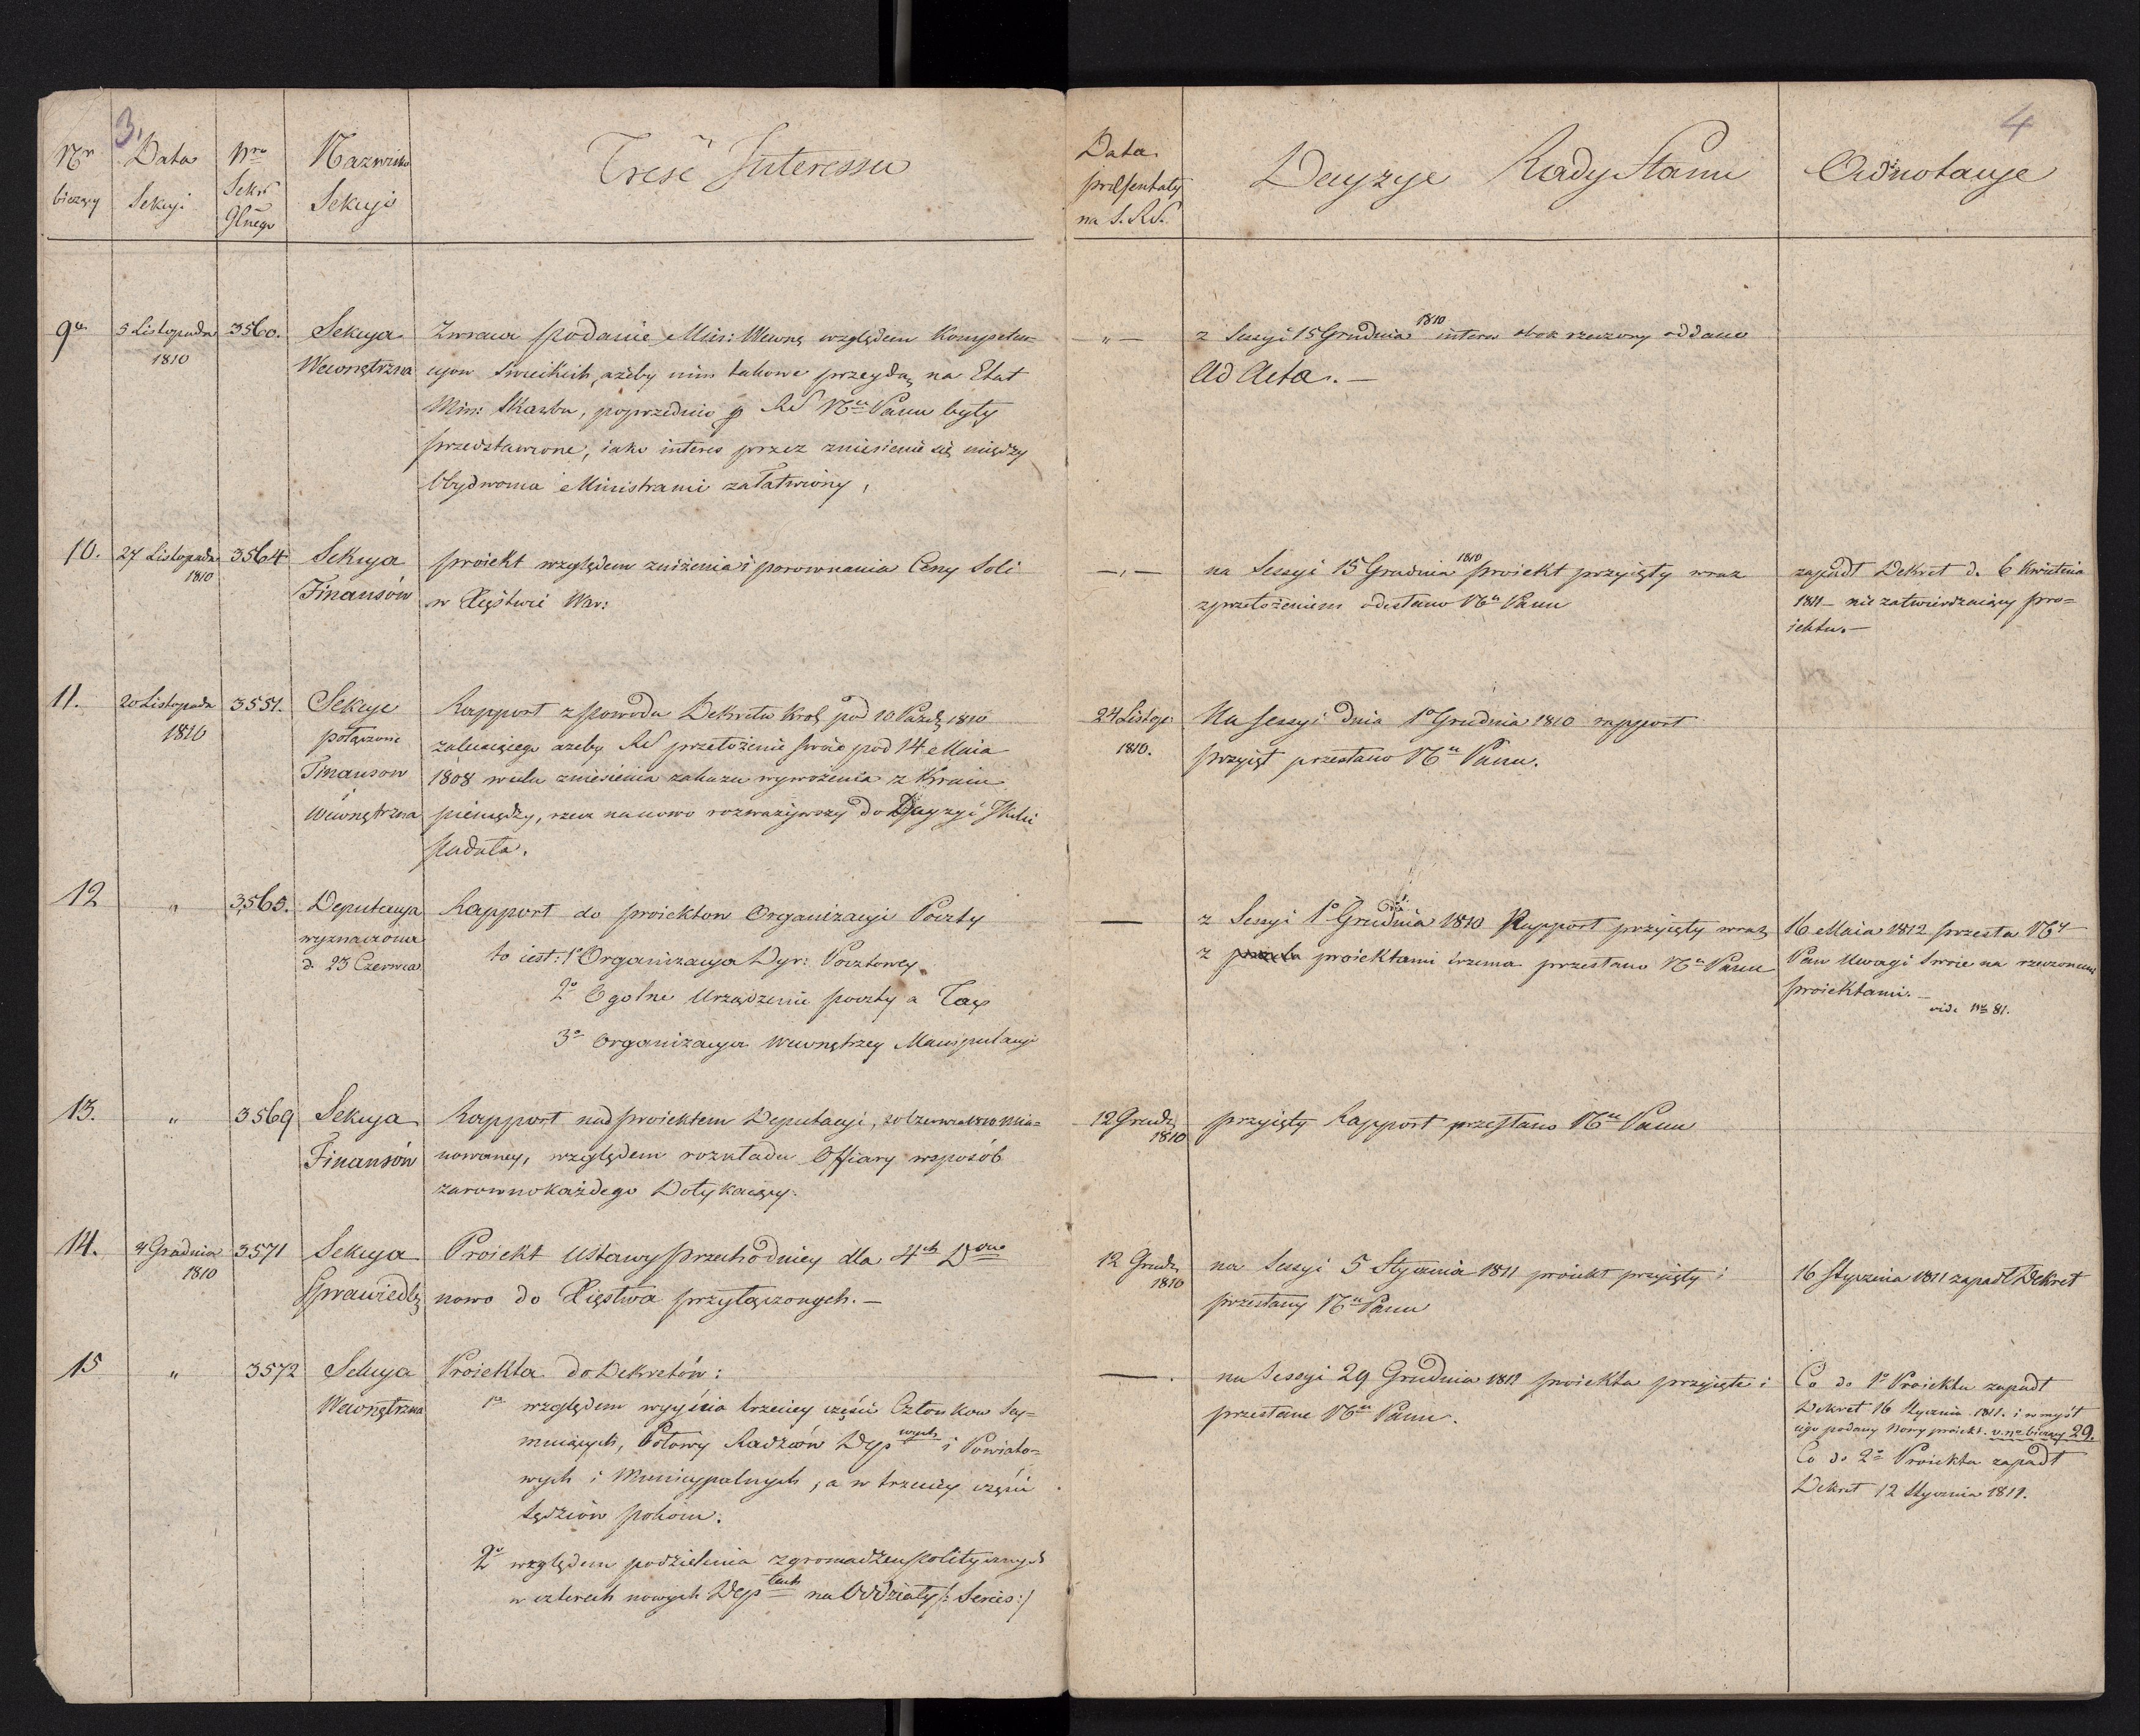 3,
Nr bieżący
Data Sekcyi
Nro Sekr. Glnego
Nazwisko Sekcyi
Treść Interessu
9.
5 Listopada 1810
3560.
Sekcya Wewnętrzna
Zwraca podanie Min: Wewnę względem Kompeten-
cyow Swieckich, ażeby nim takowe przeydą na Etat
Min: Skarbu, poprzednio p RS Nu Panu były
przedstawione, iako interes przez zniesienie się między
Obydwoma Ministrami załatwiony,
10.
27 Listopada 1810
3564
Sekcya Finansów
proiekt względem zniżenia i porownania Ceny Soli
w Xięstwie War:
11.
20 Listopada 1810
3551.
Sekcye połączone Finansow i Wewnętrzna
Rapport z powodu Dekretu Krol pod 10 Paźdz 1810
zalecaiącego azeby RS przełożenie swoie pod 14 Maia
1808 wielu zniesienia zakazu wywożenia z Kraiu
pieniędzy, rzecz nanowo rozważywszy do Decyzyi Jkmci
podała.
12
"
3565.
Deputacya wyznaczona d. 23 Czerwca
Rapport do proiektow Organizacyi Poczty
to iest: 1o Organizacya Dyr: Pocztowey
2o Ogolne Urządzenie poczty a Tax
3o Organizacya Wewnętrzey Manipulacyi
13.
"
3569
Sekcya Finansów
Rapport nad proiektem Deputacyi, 20 Czerwca 1810 mia-
nowaney, względem rozkładu Offiary wsposób
zarowno każdego Dotykaiący.
14.
4 Grudnia 1810
3571
Sekcya Sprawiedlę
Proiekt Ustawy przechodniey dla 4ch Dow
nowo do Xięstwa przyłączonych. —
15
"
3572
Sekcya Wewnętrzna
Proiekta do Dekretów:
1o względem wyyścia trzeciey części Członkow Sey-
muiących, Połowy Radzców Depwych i Powiato-
wych i Municypalnych, a w trzeciey części
sędziów pokoiu.
2o względem podzielenia zgromadzeń politycznych
w czterech nowych Deptach na Oddziały /: Series :/
4
Data presentaty na S. RS.
Decyzye Rady Stanu
Adnotacye
— " —
z Sessyi 15 Grudnia 1810 interes obok rzeczony oddano
Ad Acta. —
— " —
na Sessyi 15 Grudnia 1810 proiekt przyięty wraz
z przełożeniem odesłano Nu Panu
zapadł Dekret d. 6 Kwietnia
1811 — nie zatwierdzaiący pro=
iektu. —
24 Listop: 1810.
Na sessyi dnia 1o Grudnia 1810 rapport
przyięt przesłano Nu Panu.
—
z Sessyi 1o Grudnia 1810 Rapport przyięty wraz
z proiektami trzema przesłano Nu Panu
16 Maia 1812 przesła Ny
Pan Uwagi swoie na rzeczonemi
proiektami. —
vide No 81.
12 Grudz 1810
przyięty Rapport przesłano Nu Panu
12 Grudz 1810
na Sessyi 5 Stycznia 1811 proiekt przyięty i
przesłany Nu Panu
16 Stycznia 1811 zapadł Dekret
— .
na Sessyi 29 Grudnia 1811 proiekta przyięte i
przesłane Nu Panu.
Co do 1o Proiektu zapadł
Dekret 16 Stycznia 1811. i w myśl
iego podany Nowy proiekt. v. no bieżący 29.
Co do 2o Proiekta zapadł
Dekret 12 Stycznia 1811.